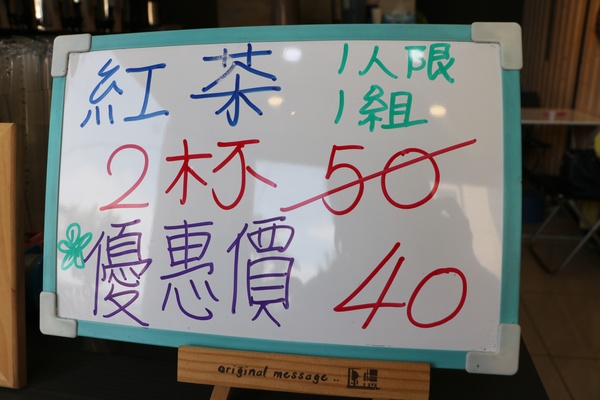 紅茶 1人限
1組
2杯 50
優惠價 40
original message..